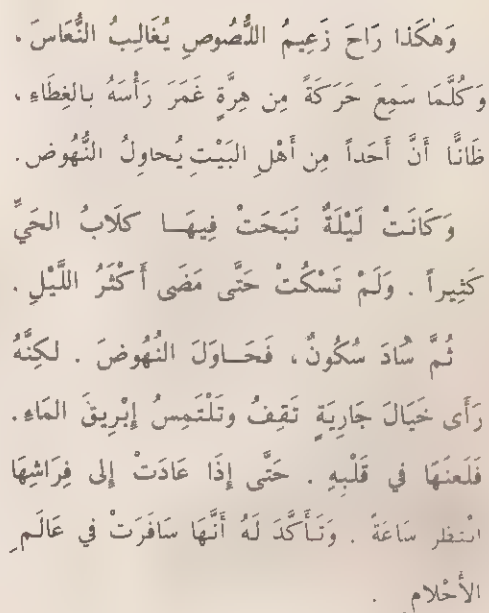 وَهٰكَذا رَاحَ زَعِيمُ اللُّصُوصِ يُغَالِبُ النُّعَاسَ .
وَكُلَّمَا سَمِعَ حَرَكَةً مِن هِرَّةٍ غَمَرَ رَأْسَهُ بالغِطَاءِ ،
ظَانًّا أَنَّ أَحَداً مِن أَهْلِ البَيْتِ يُحاوِلُ النُّهُوض .
وَكَانَتْ لَيْلَةٌ نَبَحَتْ فِيهَا كلَابُ الحَيِّ
كَثِيراً . وَلَمْ تَسْكُتْ حَتَّى مَضَى أَكْثَرُ اللَّيْلِ .
ثُمَّ سَادَ سُكُونٌ ، فَحَاوَلَ النُهُوضَ . لكِنَّهُ
رَأَى خَيَالَ جَارِيَةٍ تَقِفُ وتَلْتَمِسُ إِبْرِيقَ المَاءِ .
فَلَعنَهَا في قَلْبِهِ . حَتَّى إِذَا عَادَتْ إِلى فِرَاشِهَا
انتظر سَاعَةً . وَتَأَكَّدَ لَهُ أَنَّهَا سَافَرَتْ في عَالَمِ
الأَحْلامِ .